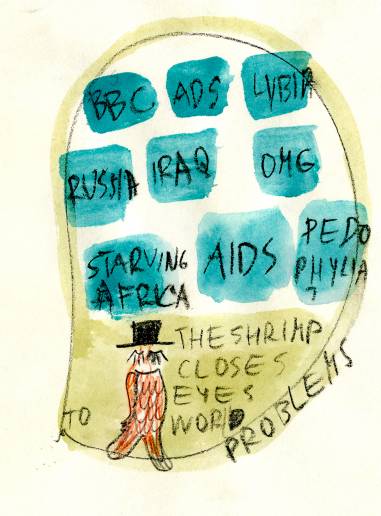 BBC ADS LYBIA
RUSSIA IRAQ OMG
STARVING
AFRICA
AIDS
PEDO
PHYLIA
?
THE SHRIMP
CLOSES
EYES
TO
WORD
PROBLEMS